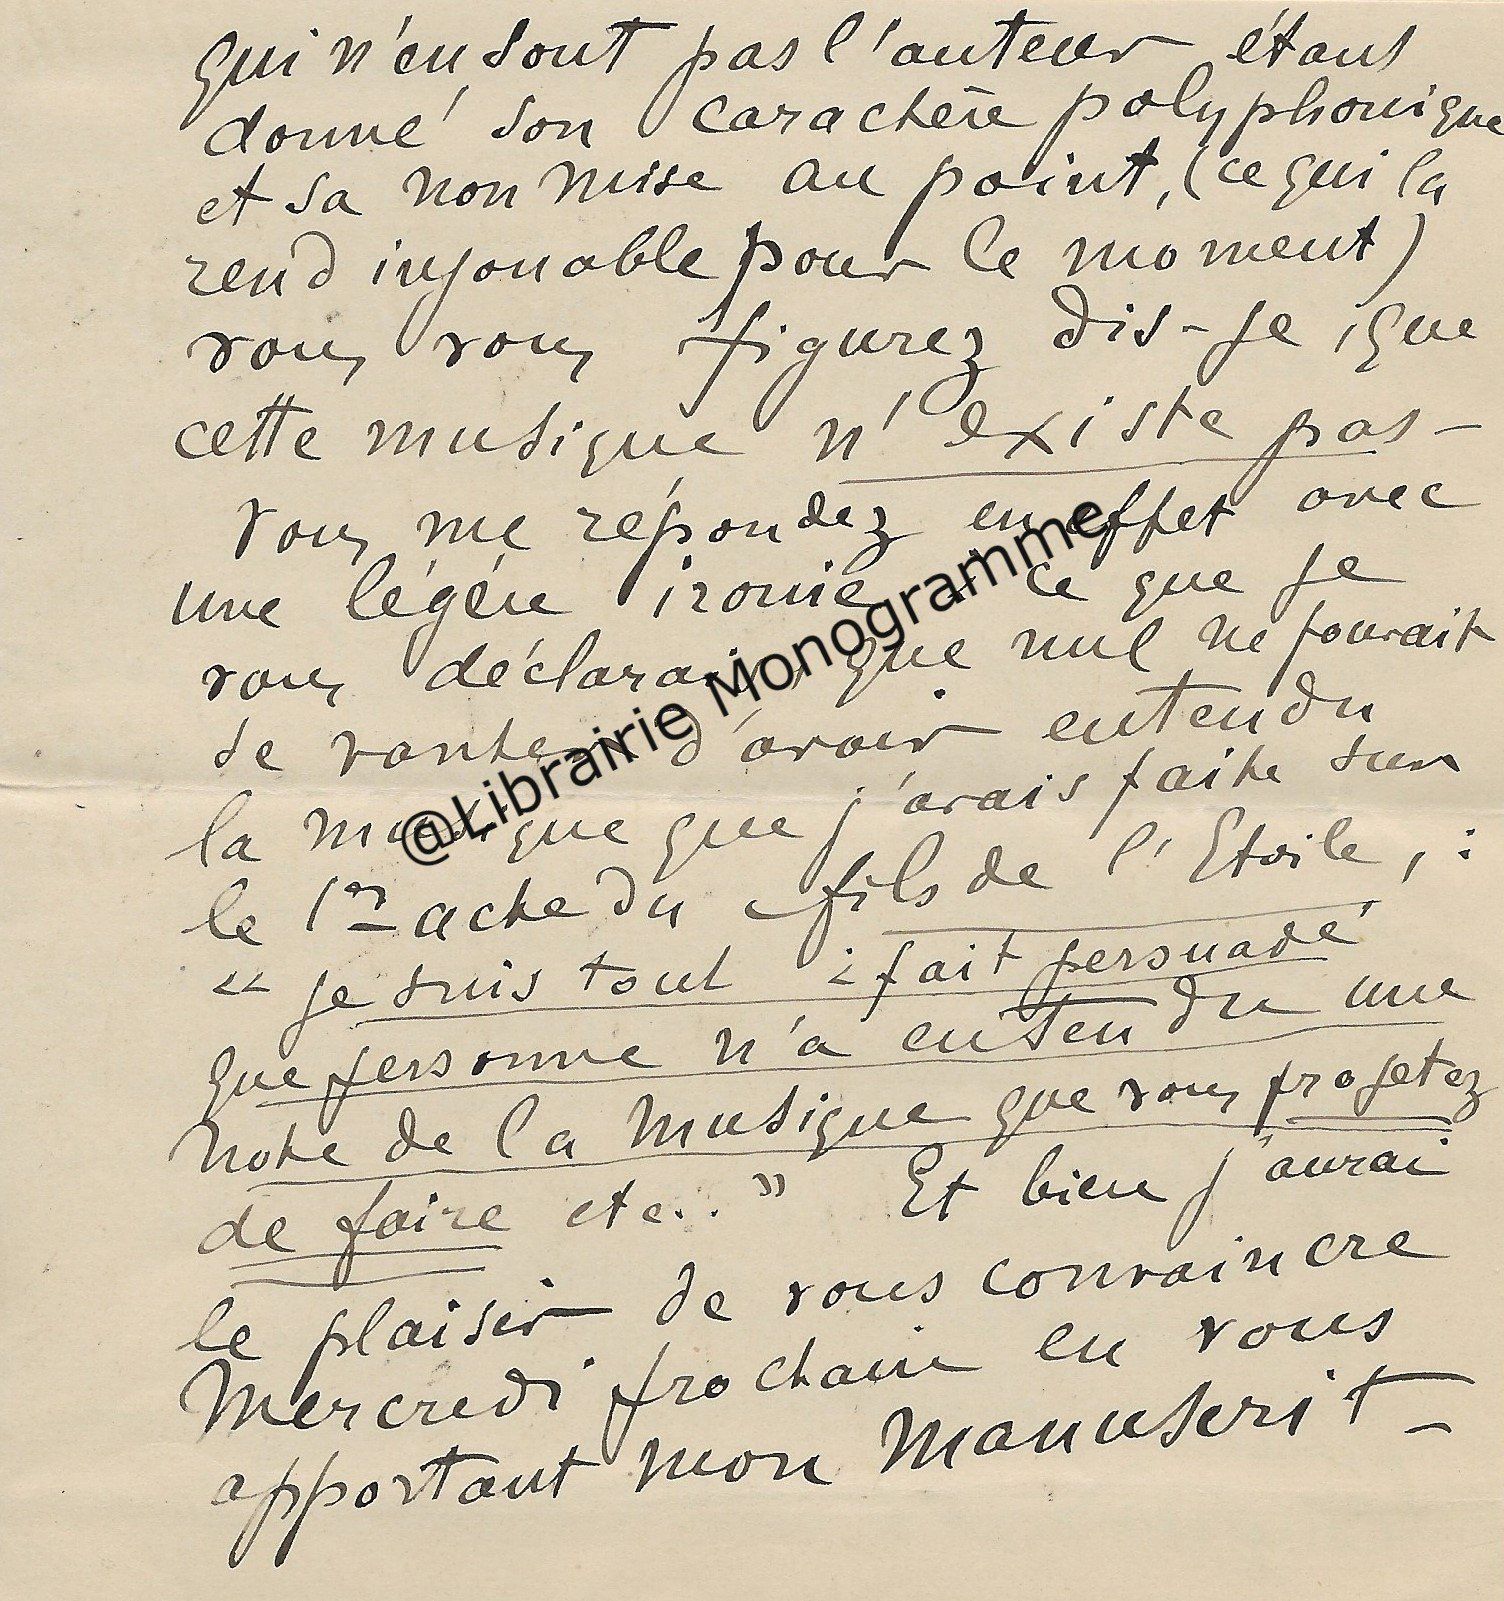 qui n'en sont pas l'auteur étant
donné son caractère polyphonique
et sa non mise au point, (ce qui la
rend injouable pour le moment)
vous vous figurez dis-je, que
cette musique n'existe pas -
Vous me répondez en effet avec
une légère ironie, à ce que je
vous déclarais, que nul ne pouvait
se vanter d'avoir entendu
la musique que j'avais faite sur
le 1er acte du fils de l'Etoile, :
« je suis tout à fait persuadé
que personne n'a entendu une
note de la musique que vous projetez
de faire etc.. » Et bien j'aurai
le plaisir de vous convaincre
Mercredi prochain en vous
apportant mon manuscrit -
@Librairie Monogramme